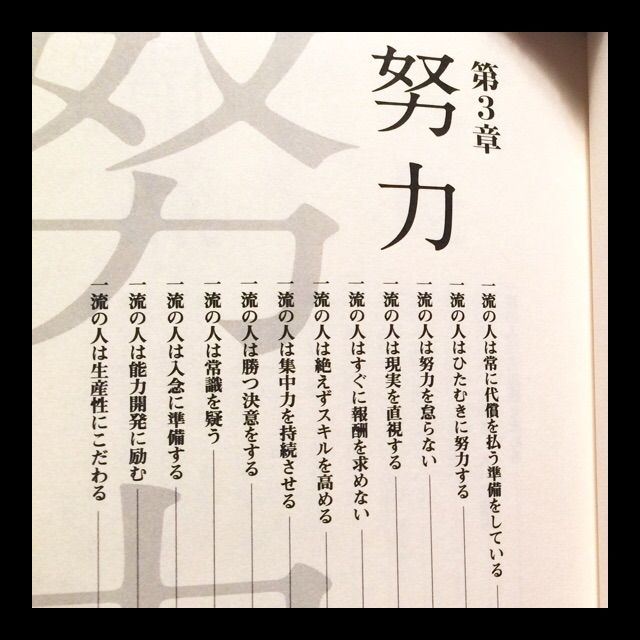 第3章
努力
一流の人は常に代償を払う準備をしている
一流の人はひたむきに努力する
一流の人は努力を怠らない
一流の人は現実を直視する
一流の人はすぐに報酬を求めない
一流の人は絶えずスキルを高める
一流の人は集中力を持続させる
一流の人は勝つ決意をする
一流の人は常識を疑う
一流の人は入念に準備する
一流の人は能力開発に励む
一流の人は生産性にこだわる
努力